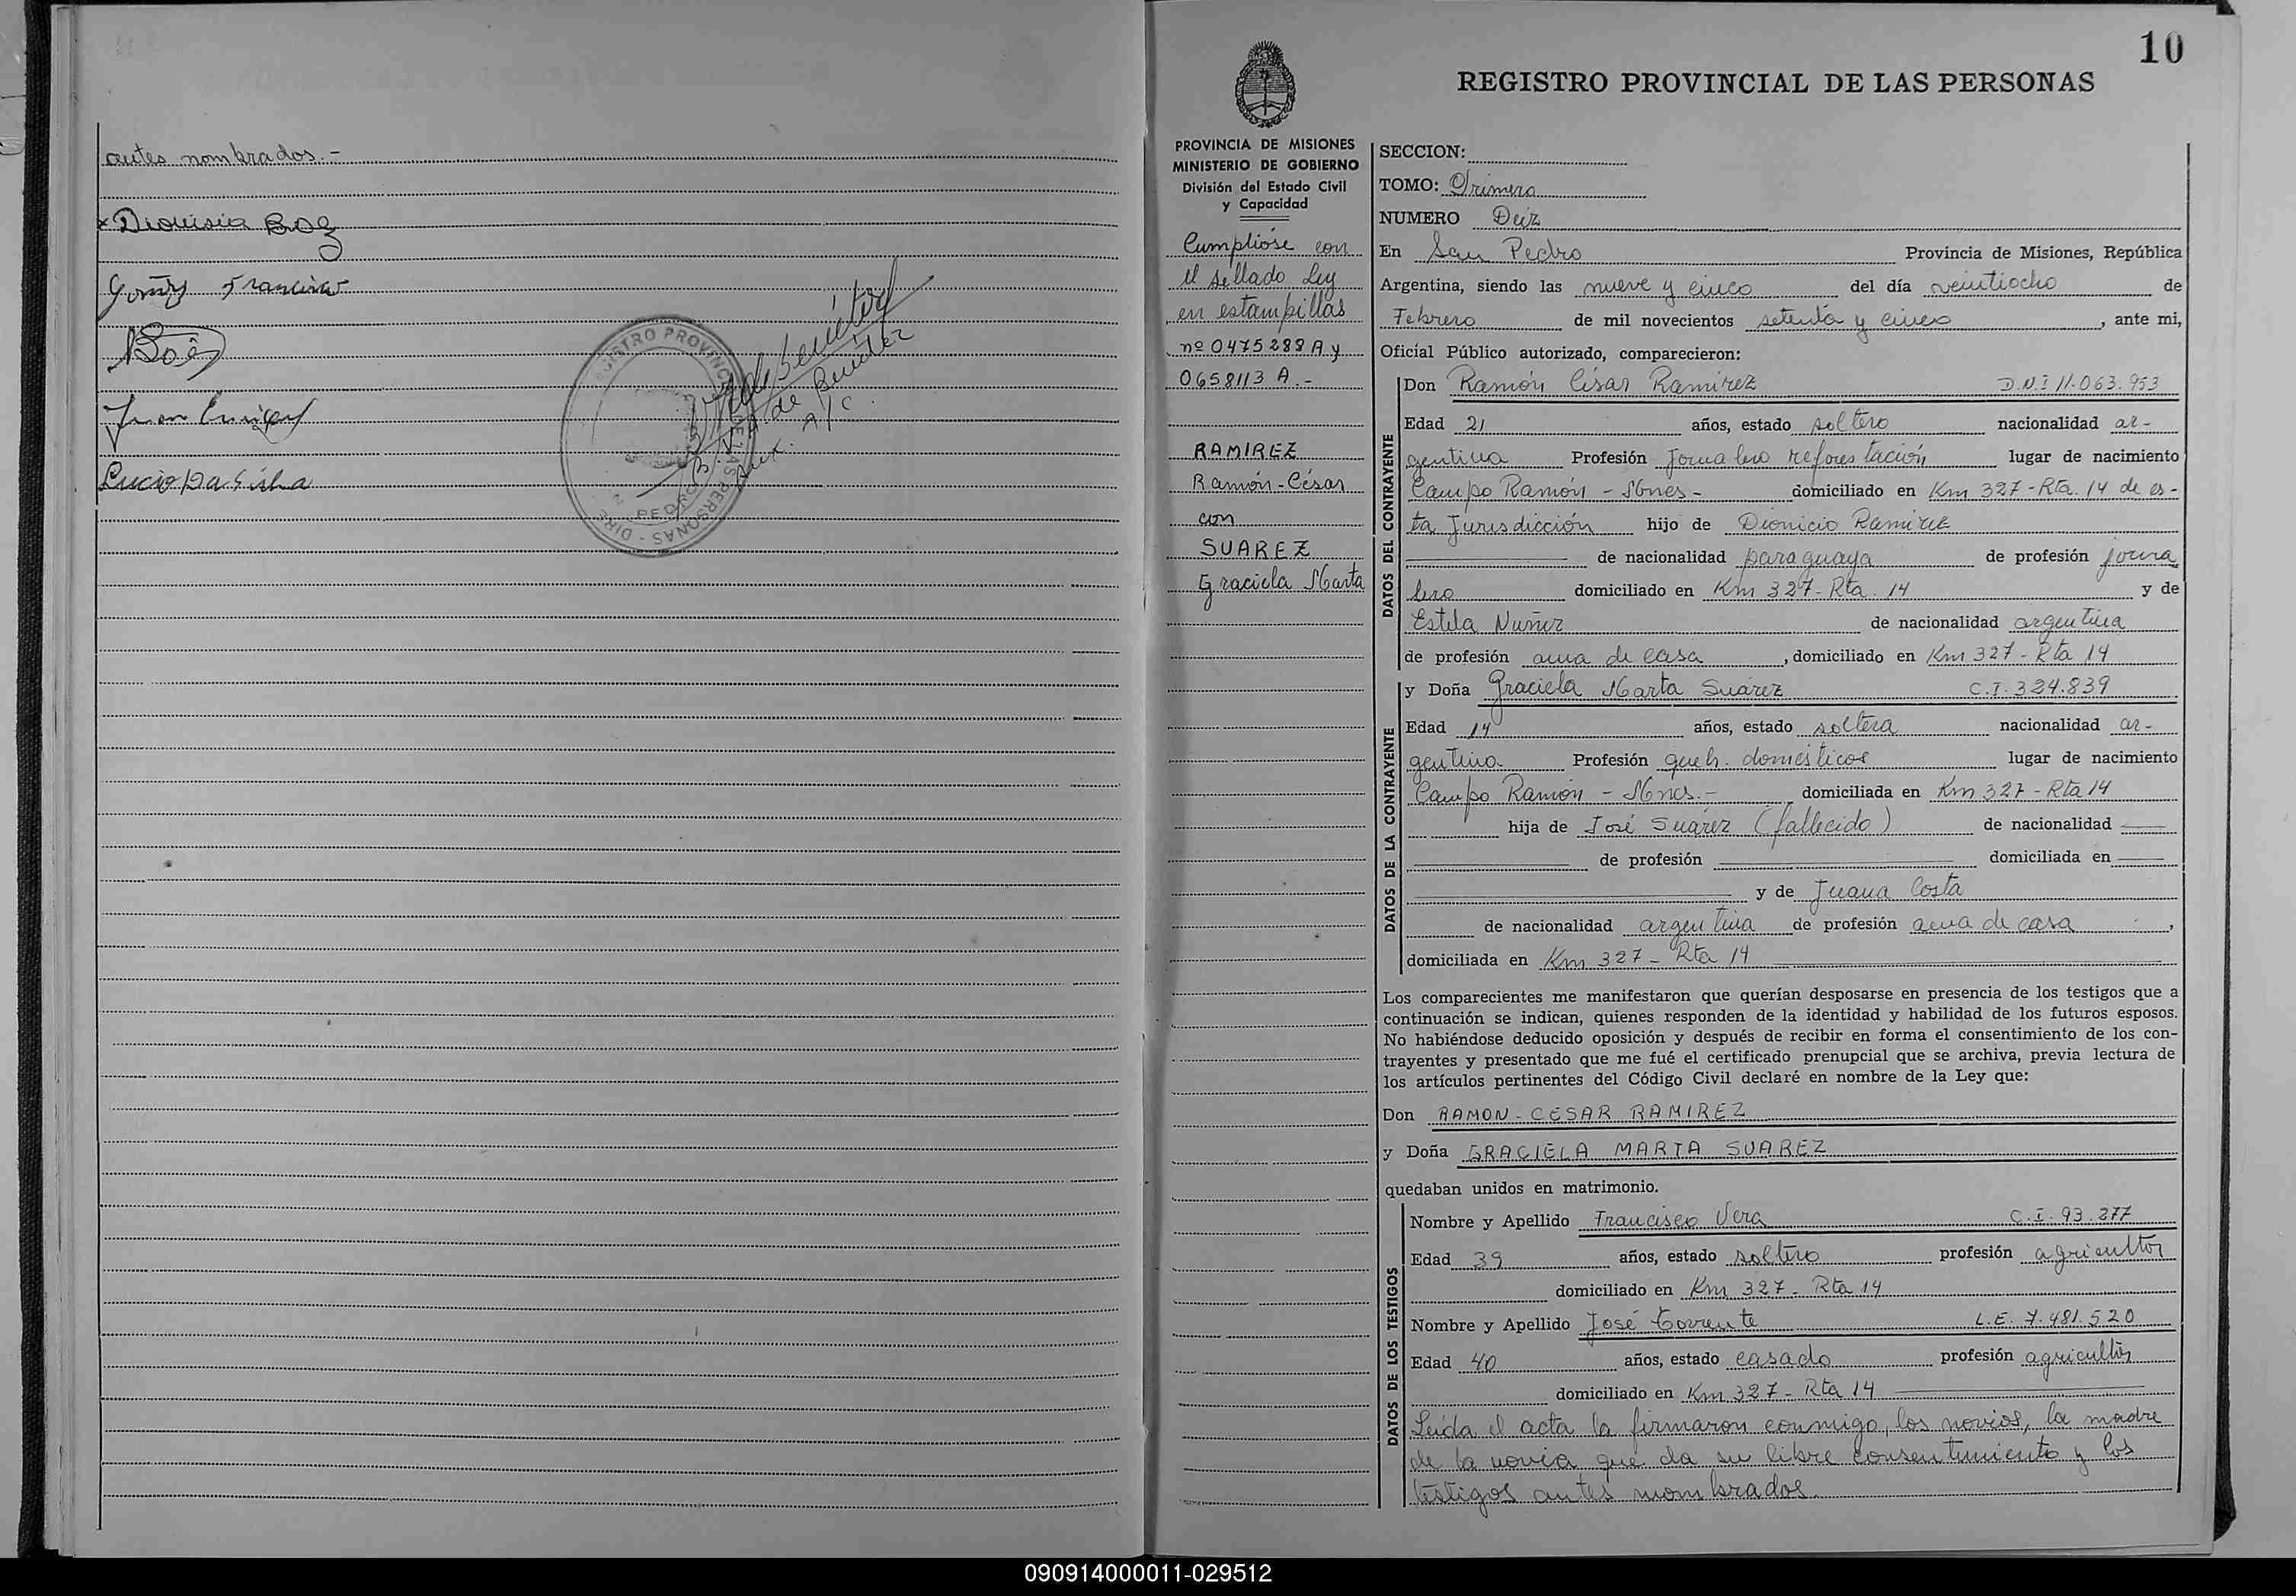 antes nombrados.-
x Dionisia Boz
Juan Enriquez
Lucio Da Silva
REGISTRO PROVINCIAL DE LAS PERSONAS - DIRE
10
REGISTRO PROVINCIAL DE LAS PERSONAS
PROVINCIA DE MISIONES
MINISTERIO DE GOBIERNO
División del Estado Civil
y Capacidad
Cumplióse con
el sellado Ley
en estampillas
nº 0475288 A y
0658113 A.-
RAMIREZ
Ramón-César
con
SUAREZ
Graciela Marta
SECCION:
TOMO: Primero
NUMERO Diez
En San Pedro Provincia de Misiones, República
Argentina, siendo las nueve y cinco del día veintiocho de
Febrero de mil novecientos setenta y cinco, ante mi,
Oficial Público autorizado, comparecieron:
DATOS DEL CONTRAYENTE
Don Ramón César Ramírez D.N.I 11.063.953
Edad 21 años, estado soltero nacionalidad ar-
gentina Profesión Jornalero reforestación lugar de nacimiento
Campo Ramón - Mnes - domiciliado en Km 327 - Rta. 14 de es-
ta Jurisdicción hijo de Dionicio Ramirez
de nacionalidad paraguaya de profesión jorna
lero domiciliado en Km 327 - Rta. 14 y de
Estela Nuñez de nacionalidad argentina
de profesión ama de casa, domiciliado en Km 327 - Rta 14
DATOS DE LA CONTRAYENTE
y Doña Graciela Marta Suárez C.I. 324.839
Edad 14 años, estado soltera nacionalidad ar-
gentina Profesión queh. domésticos lugar de nacimiento
Campo Ramón - Mnes.- domiciliada en Km 327 - Rta 14
hija de José Suárez (fallecido) de nacionalidad
de profesión domiciliada en
y de Juana Costa
de nacionalidad argentina de profesión ama de casa,
domiciliada en Km 327 - Rta 14
Los comparecientes me manifestaron que querían desposarse en presencia de los testigos que a
continuación se indican, quienes responden de la identidad y habilidad de los futuros esposos.
No habiéndose deducido oposición y después de recibir en forma el consentimiento de los con-
trayentes y presentado que me fué el certificado prenupcial que se archiva, previa lectura de
los artículos pertinentes del Código Civil declaré en nombre de la Ley que:
Don RAMON-CESAR RAMIREZ
y Doña GRACIELA MARTA SUAREZ
quedaban unidos en matrimonio.
DATOS DE LOS TESTIGOS
Nombre y Apellido Francisco Vera C.I. 93.277
Edad 39 años, estado soltero profesión agricultor
domiciliado en Km 327 - Rta 14
Nombre y Apellido José Corrente L.E. 7.481.520
Edad 40 años, estado casado profesión agricultor
domiciliado en Km 327 - Rta 14
Leída el acta la firmaron conmigo, los novios, la madre
de la novia que da su libre consentimiento y los
testigos antes nombrados.
090914000011-029512